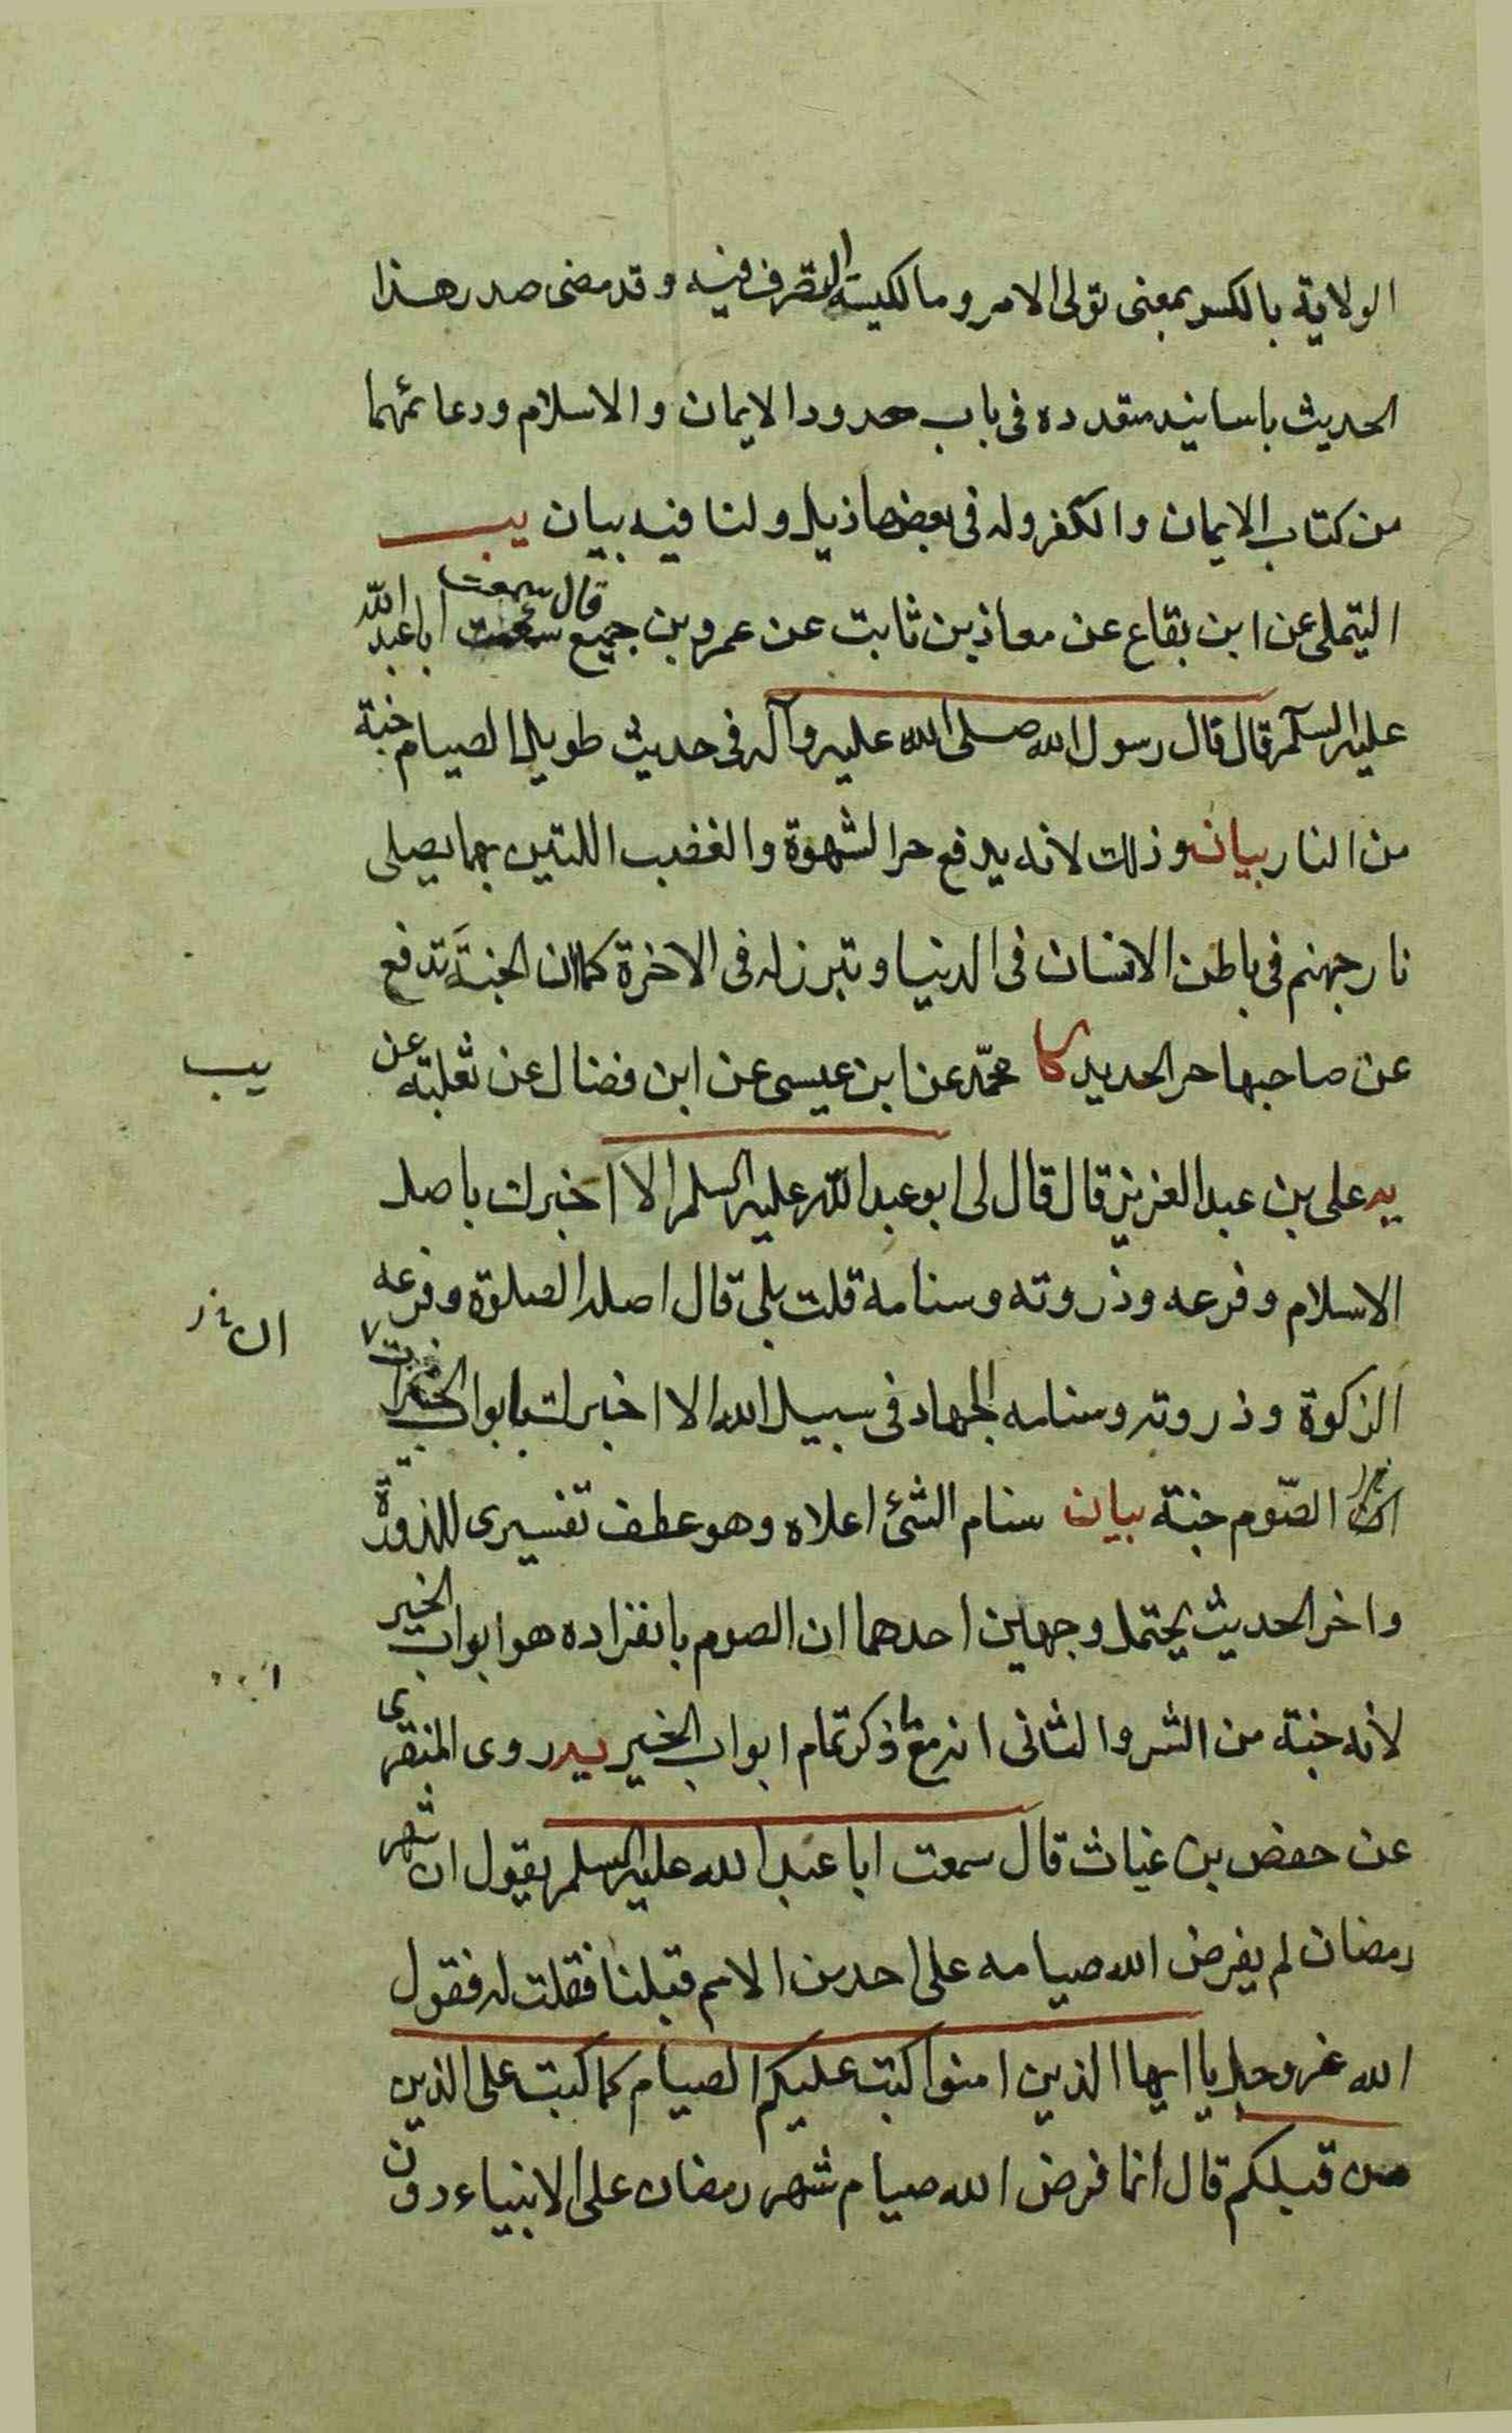 الولاية بالكسر بمعنى تولى الامر ومالكية التصرف فيه وقد مضى صدر هذا
الحديث باسانيد متعدده فى باب حدود الايمان والاسلام ودعائمهما
من كتاب الايمان والكفر وله فى بعضها ذيل ولنا فيه بيان يب
التيملى عن ابن بقاع عن معاذ بن ثابت عن عمرو بن جميع قال سمعت ابا عبد الله
عليه السلام قال قال رسول الله صلى الله عليه وآله فى حديث طويل الصيام جنة
من النار بيان وذلك لانه يدفع حر الشهوة والغضب اللتين بهما يصلى
نار جهنم فى باطن الانسان فى الدنيا وتبرز له فى الاخرة كما ان الجنة تدفع
عن صاحبها حر الحديد كا محمد عن ابن عيسى عن ابن فضال عن ثعلبة عن
يب
يه على بن عبد العزيز قال قال لى ابو عبد الله عليه السلم الا اخبرك باصل
الاسلام وفرعه وذروته وسنامه قلت بلى قال اصله الصلوة وفرعه
الزكوة وذروته وسنامه الجهاد فى سبيل الله الا اخبرك بابواب الخير
الصوم جنة بيان سنام الشئ اعلاه وهو عطف تفسيرى للذروة
واخر الحديث يحتمل وجهين احدهما ان الصوم بانفراده هو ابواب الخير
لأنه جنة من الشر والثانى انه مع ما ذكر تمام ابواب الخير يه روى المنقرى
عن حفص بن غياث قال سمعت ابا عبد الله عليه السلم يقول ان شهر
رمضان لم يفرض الله صيامه على احد من الامم قبلنا فقلت له فقول
الله عز وجل يا ايها الذين امنوا كتب عليكم الصيام كما كتب على الذين
من قبلكم قال انما فرض الله صيام شهر رمضان على الانبياء دون